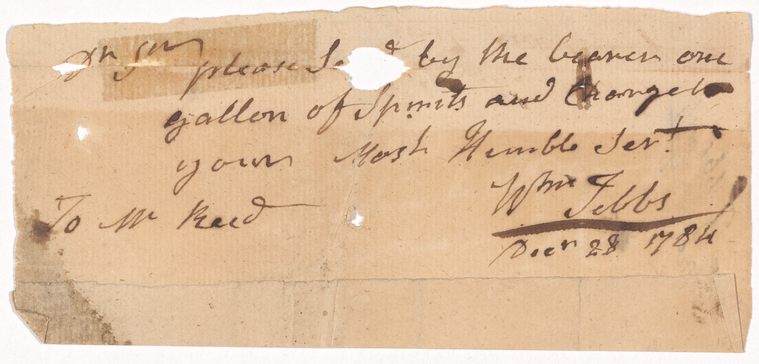 Dr Sir
please Se d by the bearer one
gallon of Spirits and Charge to
your Most Humble Sert
Wm Tebbs
To Mr Reed
Decr 28 1784